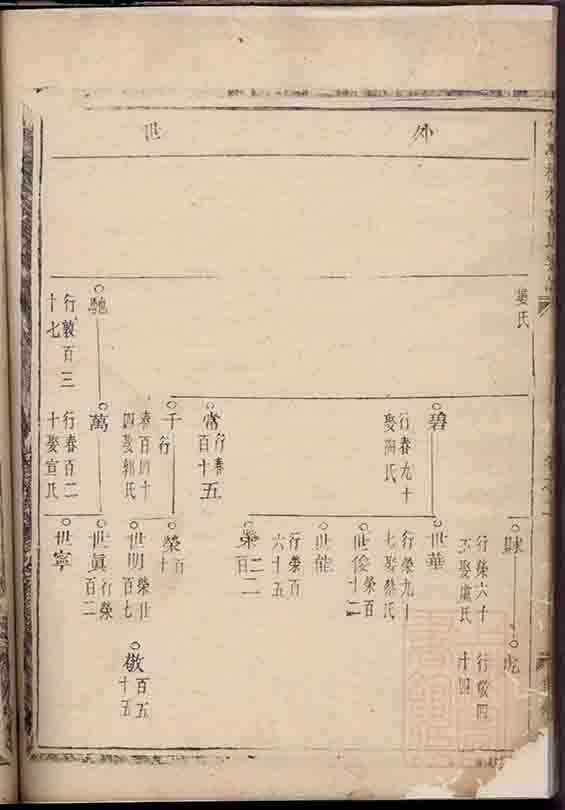 外
世
娶氏
馳
行敦百三
十七
碧
行春九十
娶陶氏
常
行春
百十五
千
行
春百四十
四娶郭氏
萬
行春百二
十娶宣氏
行榮六十
娶盧氏
虎
行敬四
十四
世華
行榮九十
七娶蔡氏
世俊
榮百
十二
世能
行榮百
六十五
榮
百
十
世明
榮廿
百七
敬
百五
十五
世真
行榮
百二
世寧